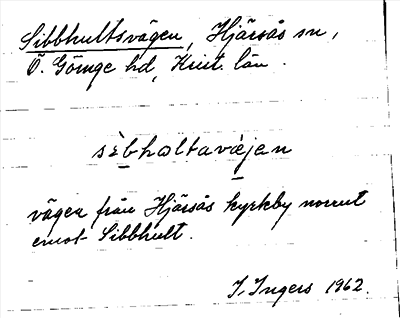 Sibbhultsvägen, Hjärsås sn,
Ö. Göinge hd, Krist. län.
sèbholtavæjen
vägen från Hjärsås kyrkby norrut
emot Sibbhult.
I. Ingers 1962.